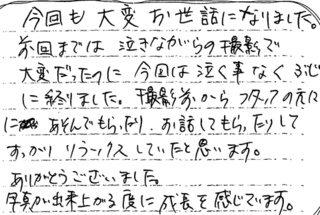 今回も大変お世話になりました。
前回までは泣きながらの撮影で
大変だったのに今回は泣く事なくぶじ
に終りました。撮影前からスタッフの方に
あそんでもらったり、お話してもらったりして
すっかりリラックスしていたと思います。
ありがとうございました。
写真が出来上がる度に成長を感じています。